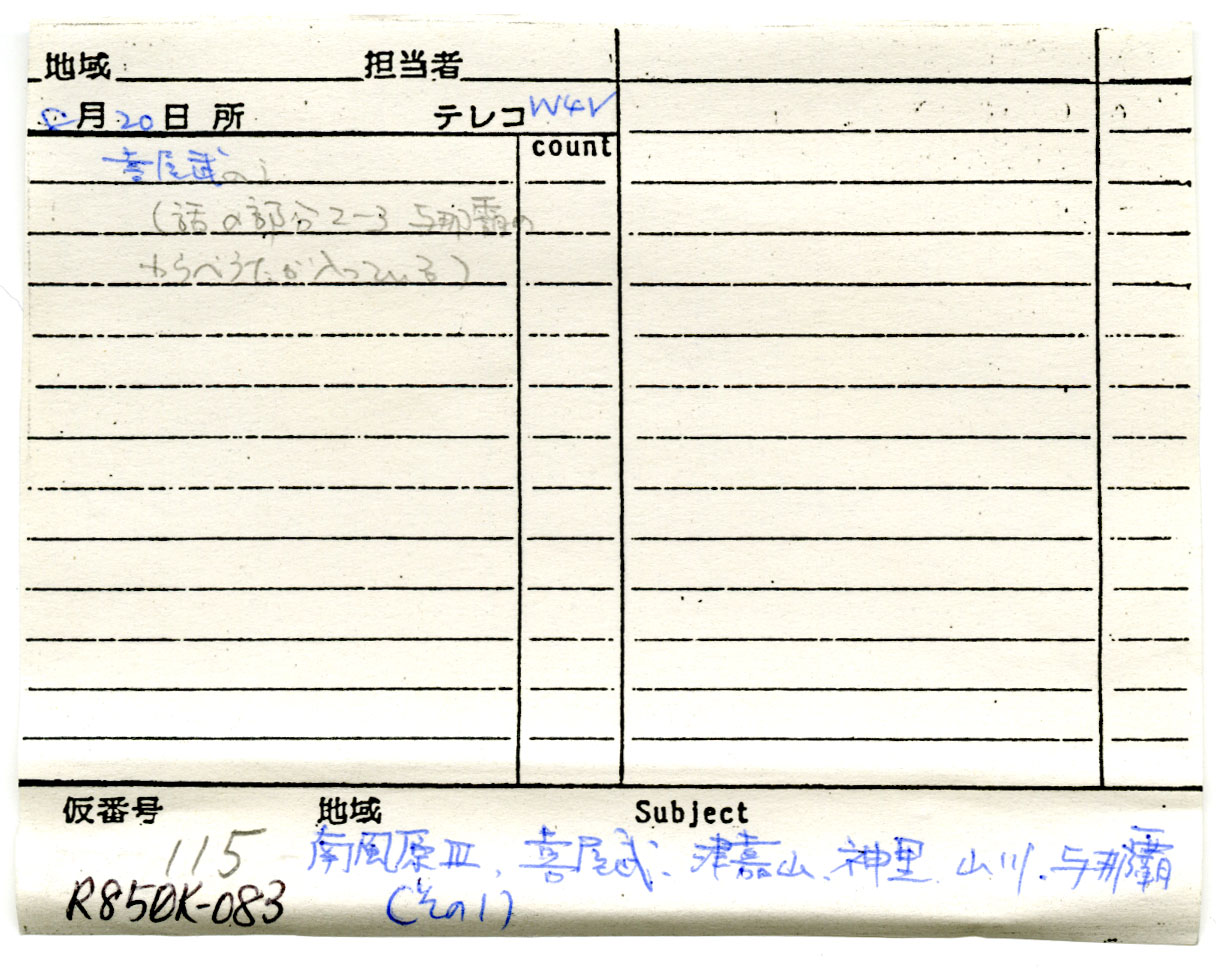 地域 担当者
月20日 所 テレコ W4V
count
喜屋武
(話の部分2-3 与那覇の
わらべうたが入っている)
仮番号 地域 Subject
115 南風原III、喜屋武、津嘉山、神里、山川、与那覇
R850K-083 (その1)